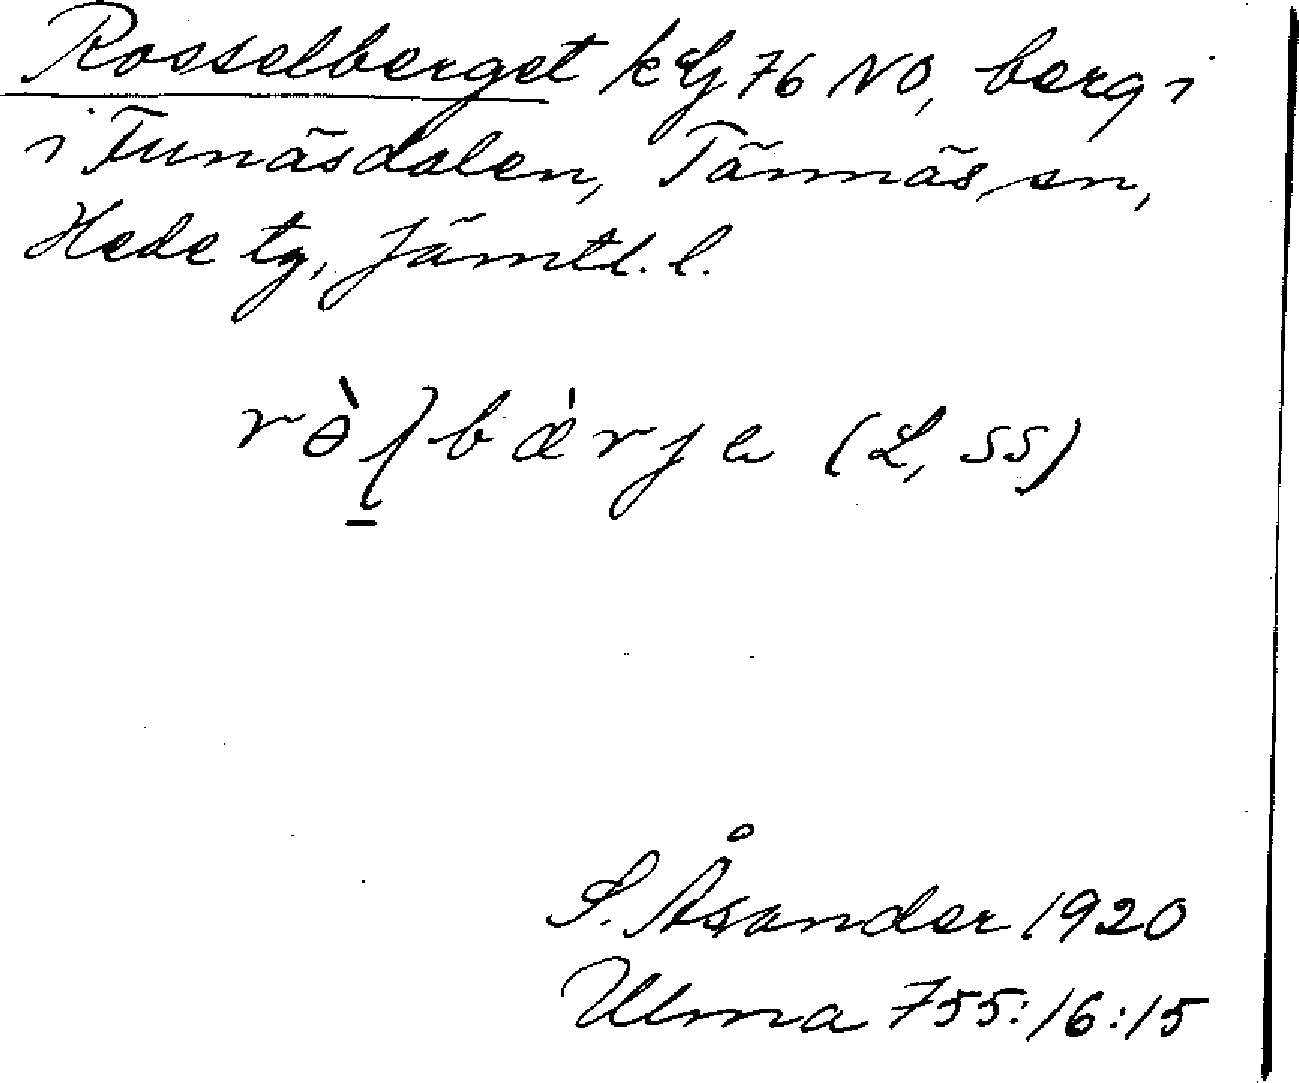 Rosselberget kbg 76 NO, berg i
i Funäsdalen, Tännäs sn,
Hede tg, Jämtl. l.
bæ̀rja (L, SS)
S. Åsander 1920
Ulma 755:16:15